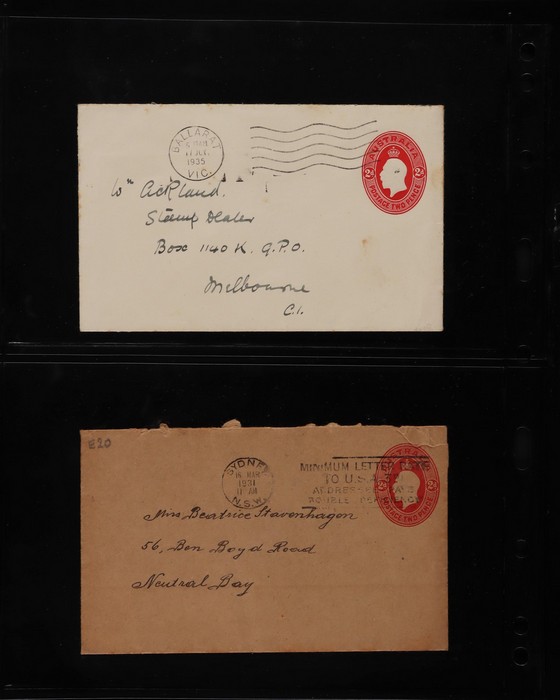 BALLARAT
1935
VIC.
AUSTRALIA
2D 2D
POSTAGE TWO PENCE
Wm Ackland.
Stamp Dealer
Box 1140 K. G.P.O.
Melbourne
C.1.
E20
SYDNEY
MAR
1931
11 AM
N.S.W.
MINIMUM LETTER RATE
TO U.S.A.
ADDRESSEE
DOUBLE
AUSTRALIA
2D 2D
POSTAGE TWO PENCE
Miss Beatrice Stavenhagen
56, Ben Boyd Road
Neutral Bay